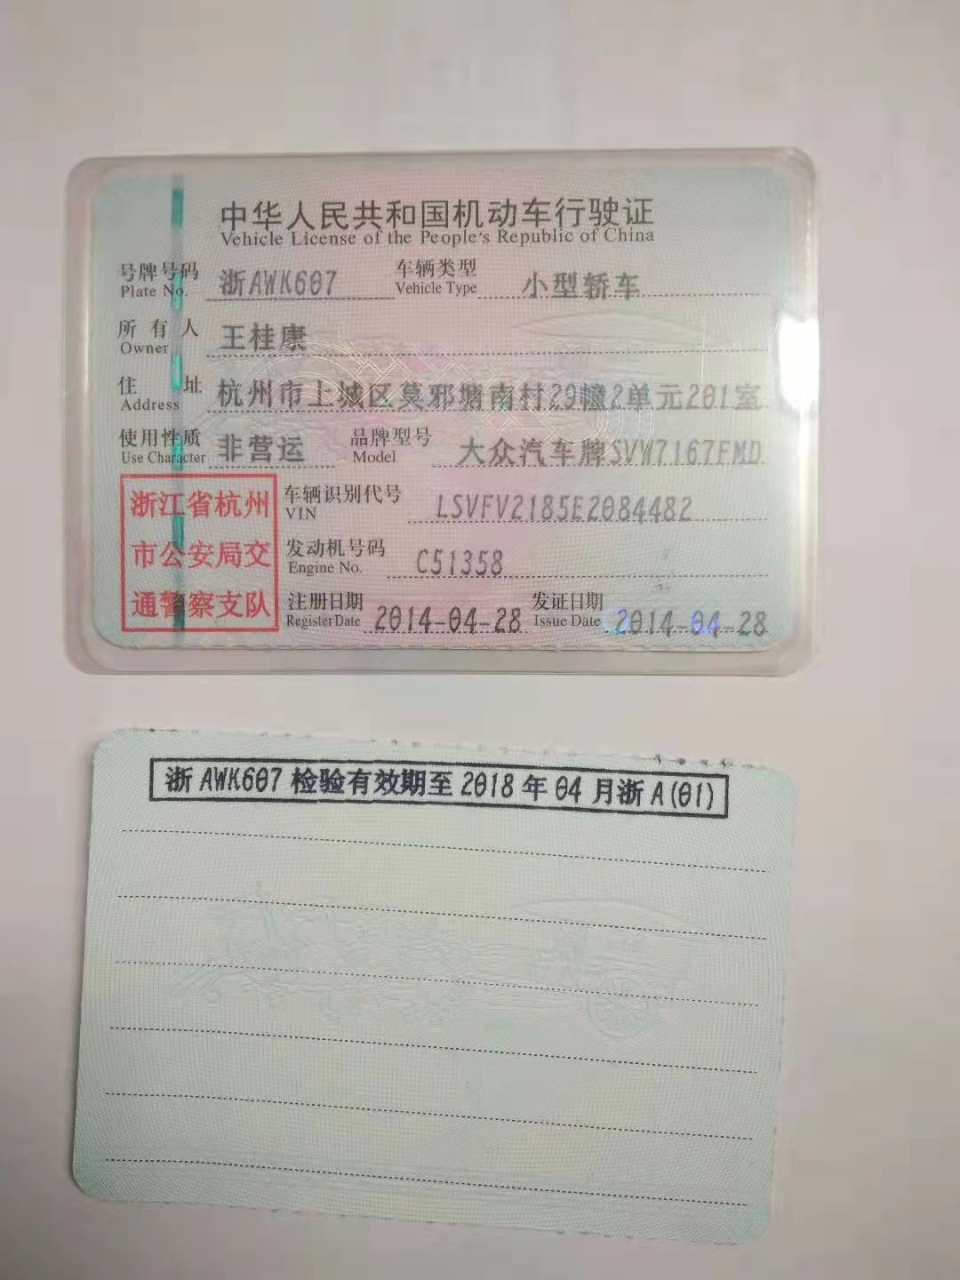 中华人民共和国机动车行驶证
Vehicle License of the People's Republic of China
号牌号码 浙AWK607 车辆类型 小型轿车
Plate No. Vehicle Type
所有人 王桂康
Owner
住址 杭州市上城区莫邪塘南村29幢2单元201室
Address
使用性质 非营运 品牌型号 大众汽车牌SVW7167FMD
Use Character Model
浙江省杭州
市公安局交
通警察支队
车辆识别代号 LSVFV2185E2084482
VIN
发动机号码 C51358
Engine No.
注册日期 2014-04-28 发证日期 2014-04-28
Register Date Issue Date
浙AWK607检验有效期至2018年04月浙A(01)